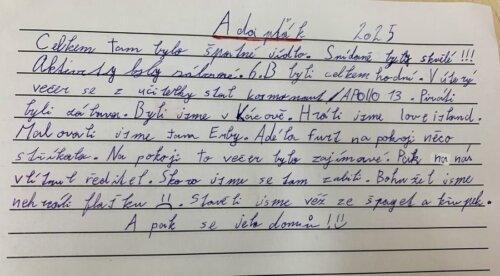 Adapťák 2025
Celkem tam bylo špatné jídlo. Snídaně byly skvělé !!!
Aktivity byly zábavné. 6.B byli celkem hodní. V úterý
večer se z učitelky stal kosmonaut/APOLLO 13. Piráti
byli zábavní. Byli jsme v Kácově. Hráli jsme love island.
Malovali jsme tam Erby. Adéla furt na pokoji něco
stříkala. Na pokoji to večer bylo zajímavé. Pak na nás
vlítnul ředitel. Skoro jsme se tam zabili. Bohužel jsme
nehráli flašku :(. Staveli jsme věž ze špaget a
A pak se jelo domů!:)